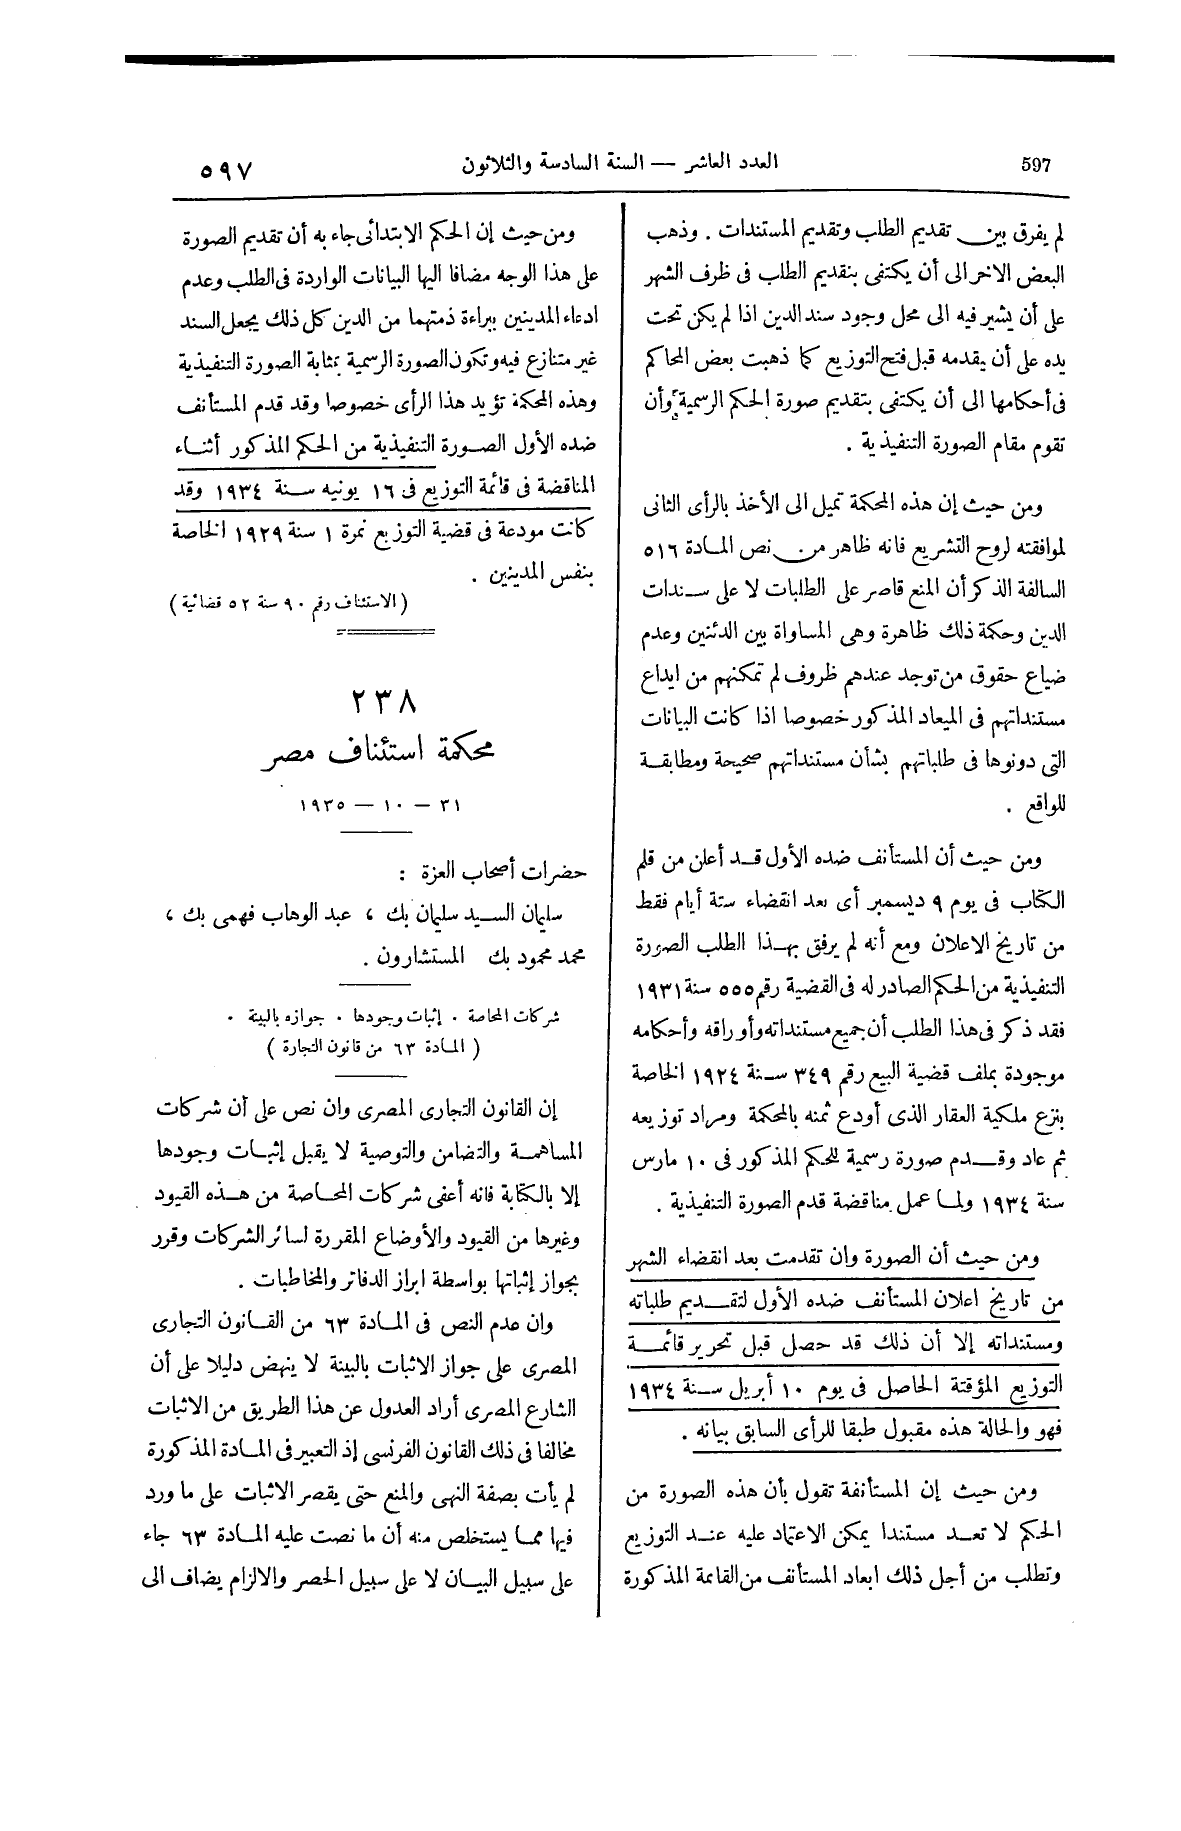 597
العدد العاشر — السنة السادسة والثلاثون
٥٩٧
لم يفرق بين تقديم الطلب وتقديم المستندات . وذهب
البعض الاخر الى أن يكتفى بتقديم الطلب فى ظرف الشهر
على أن يشير فيه الى محل وجود سند الدين اذا لم يكن تحت
يده على أن يقدمه قبل فتح التوزيع كما ذهبت بعض المحاكم
فى أحكامها الى أن يكتفى بتقديم صورة الحكم الرسمية وأن
تقوم مقام الصورة التنفيذية .
ومن حيث إن هذه المحكمة تميل الى الأخذ بالرأى الثانى
لموافقته لروح التشريع فانه ظاهر من نص المادة ٥١٦
السالفة الذكر أن المنع قاصر على الطلبات لا على سندات
الدين وحكمة ذلك ظاهرة وهى المساواة بين الدئنين وعدم
ضياع حقوق من توجد عندهم ظروف لم تمكنهم من ايداع
مستنداتهم فى الميعاد المذكور خصوصا اذا كانت البيانات
التى دونوها فى طلباتهم بشأن مستنداتهم صحيحة ومطابقة
للواقع .
ومن حيث أن المستأنف ضده الأول قد أعلن من قلم
الكتاب فى يوم ٩ ديسمبر أى بعد انقضاء ستة أيام فقط
من تاريخ الاعلان ومع أنه لم يرفق بهذا الطلب الصورة
التنفيذية من الحكم الصادر له فى القضية رقم ٥٥٥ سنة ١٩٣١
فقد ذكر فى هذا الطلب أن جميع مستنداته وأوراقه وأحكامه
موجودة بملف قضية البيع رقم ٣٤٩ سنة ١٩٢٤ الخاصة
بنزع ملكية العقار الذى أودع ثمنه بالمحكمة ومراد توزيعه
ثم عاد وقدم صورة رسمية للحكم المذكور فى ١٠ مارس
سنة ١٩٣٤ ولما عمل مناقضة قدم الصورة التنفيذية .
ومن حيث أن الصورة وان تقدمت بعد انقضاء الشهر
من تاريخ اعلان المستأنف ضده الأول لتقديم طلباته
ومستنداته إلا أن ذلك قد حصل قبل تحرير قائمة
التوزيع المؤقتة الحاصل فى يوم ١٠ أبريل سنة ١٩٣٤
فهو والحالة هذه مقبول طبقا للرأى السابق بيانه .
ومن حيث إن المستأنفة تقول بأن هذه الصورة من
الحكم لا تعد مستندا يمكن الاعتماد عليه عند التوزيع
وتطلب من أجل ذلك ابعاد المستأنف من القائمة المذكورة
ومن حيث إن الحكم الابتدائى جاء به أن تقديم الصورة
على هذا الوجه مضافا اليها البيانات الواردة فى الطلب وعدم
ادعاء المدينين ببراءة ذمتهما من الدين كل ذلك يجعل السند
غير متنازع فيه وتكون الصورة الرسمية بمثابة الصورة التنفيذية
وهذه المحكمة تؤيد هذا الرأى خصوصا وقد قدم المستأنف
ضده الأول الصورة التنفيذية من الحكم المذكور أثناء
المناقضة فى قائمة التوزيع فى ١٦ يونيه سنة ١٩٣٤ وقد
كانت مودعة فى قضية التوزيع نمرة ١ سنة ١٩٢٩ الخاصة
بنفس المدينين .
( الاستئناف رقم ٩٠ سنة ٥٢ قضائية )
٢٣٨
محكمة استئناف مصر
٣١ — ١٠ — ١٩٣٥
حضرات أصحاب العزة :
سليمان السيد سليمان بك ، عبد الوهاب فهمى بك ،
محمد محمود بك المستشارون .
شركات المحاصة . إثبات وجودها . جوازه بالبينة .
( المادة ٦٣ من قانون التجارة )
إن القانون التجارى المصرى وان نص على أن شركات
المساهمة والتضامن والتوصية لا يقبل إثبات وجودها
إلا بالكتابة فانه أعفى شركات المحاصة من هذه القيود
وغيرها من القيود والأوضاع المقررة لسائر الشركات وقرر
بجواز إثباتها بواسطة ابراز الدفاتر والمخاطبات .
وان عدم النص فى المادة ٦٣ من القانون التجارى
المصرى على جواز الاثبات بالبينة لا ينهض دليلا على أن
الشارع المصرى أراد العدول عن هذا الطريق من الاثبات
مخالفا فى ذلك القانون الفرنسى إذ التعبير فى المادة المذكورة
لم يأت بصفة النهى والمنع حتى يقصر الاثبات على ما ورد
فيها مما يستخلص منه أن ما نصت عليه المادة ٦٣ جاء
على سبيل البيان لا على سبيل الحصر والالزام يضاف الى